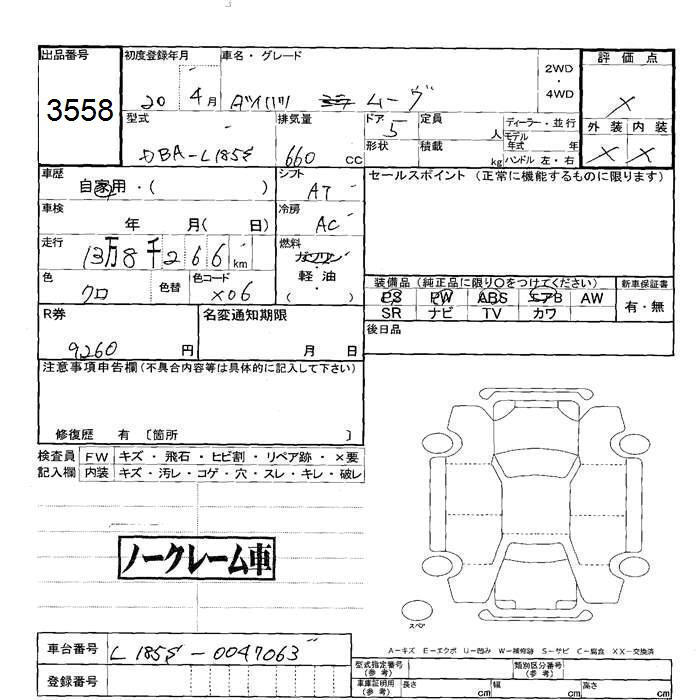 出品番号
3558
初度登録年月
20 4月
車名・グレード
ダイハツ ムーヴ
2WD
・
4WD
評価点
X
外装 内装
X X
型式
DBA-L185S
排気量
660 CC
ドア
5
形状
定員
人
積載
kg
ディーラー・並行
モデル
年式 年
ハンドル 左・右
車歴
自家用・( )
シフト
AT
セールスポイント (正常に機能するものに限ります)
車検
年 月( 日)
冷房
AC
走行
13万8千266km
燃料
ガソリン
軽・油
( )
色
クロ
色替
色コード
X06
装備品 (純正品に限り〇をつけてください)
PS PW ABS エアB AW
SR ナビ TV カワ
新車保証書
有・無
後日品
R券
9260 円
名変通知期限
月 日
注意事項申告欄 (不具合内容等は具体的に記入して下さい)
修復歴 有 〔箇所 〕
検査員
記入欄
FW キズ・飛石・ヒビ割・リペア跡・×要
内装 キズ・汚レ・コゲ・穴・スレ・キレ・破レ
ノークレーム車
スペア
A-キズ E-エクボ U-凹み W-補修跡 S-サビ C-腐食 XX-交換済
車台番号
L185S-0047063
登録番号
型式指定番号
(参考)
類別区分番号
(参考)
車庫証明用
(参考)
長さ cm
幅 cm
高さ cm